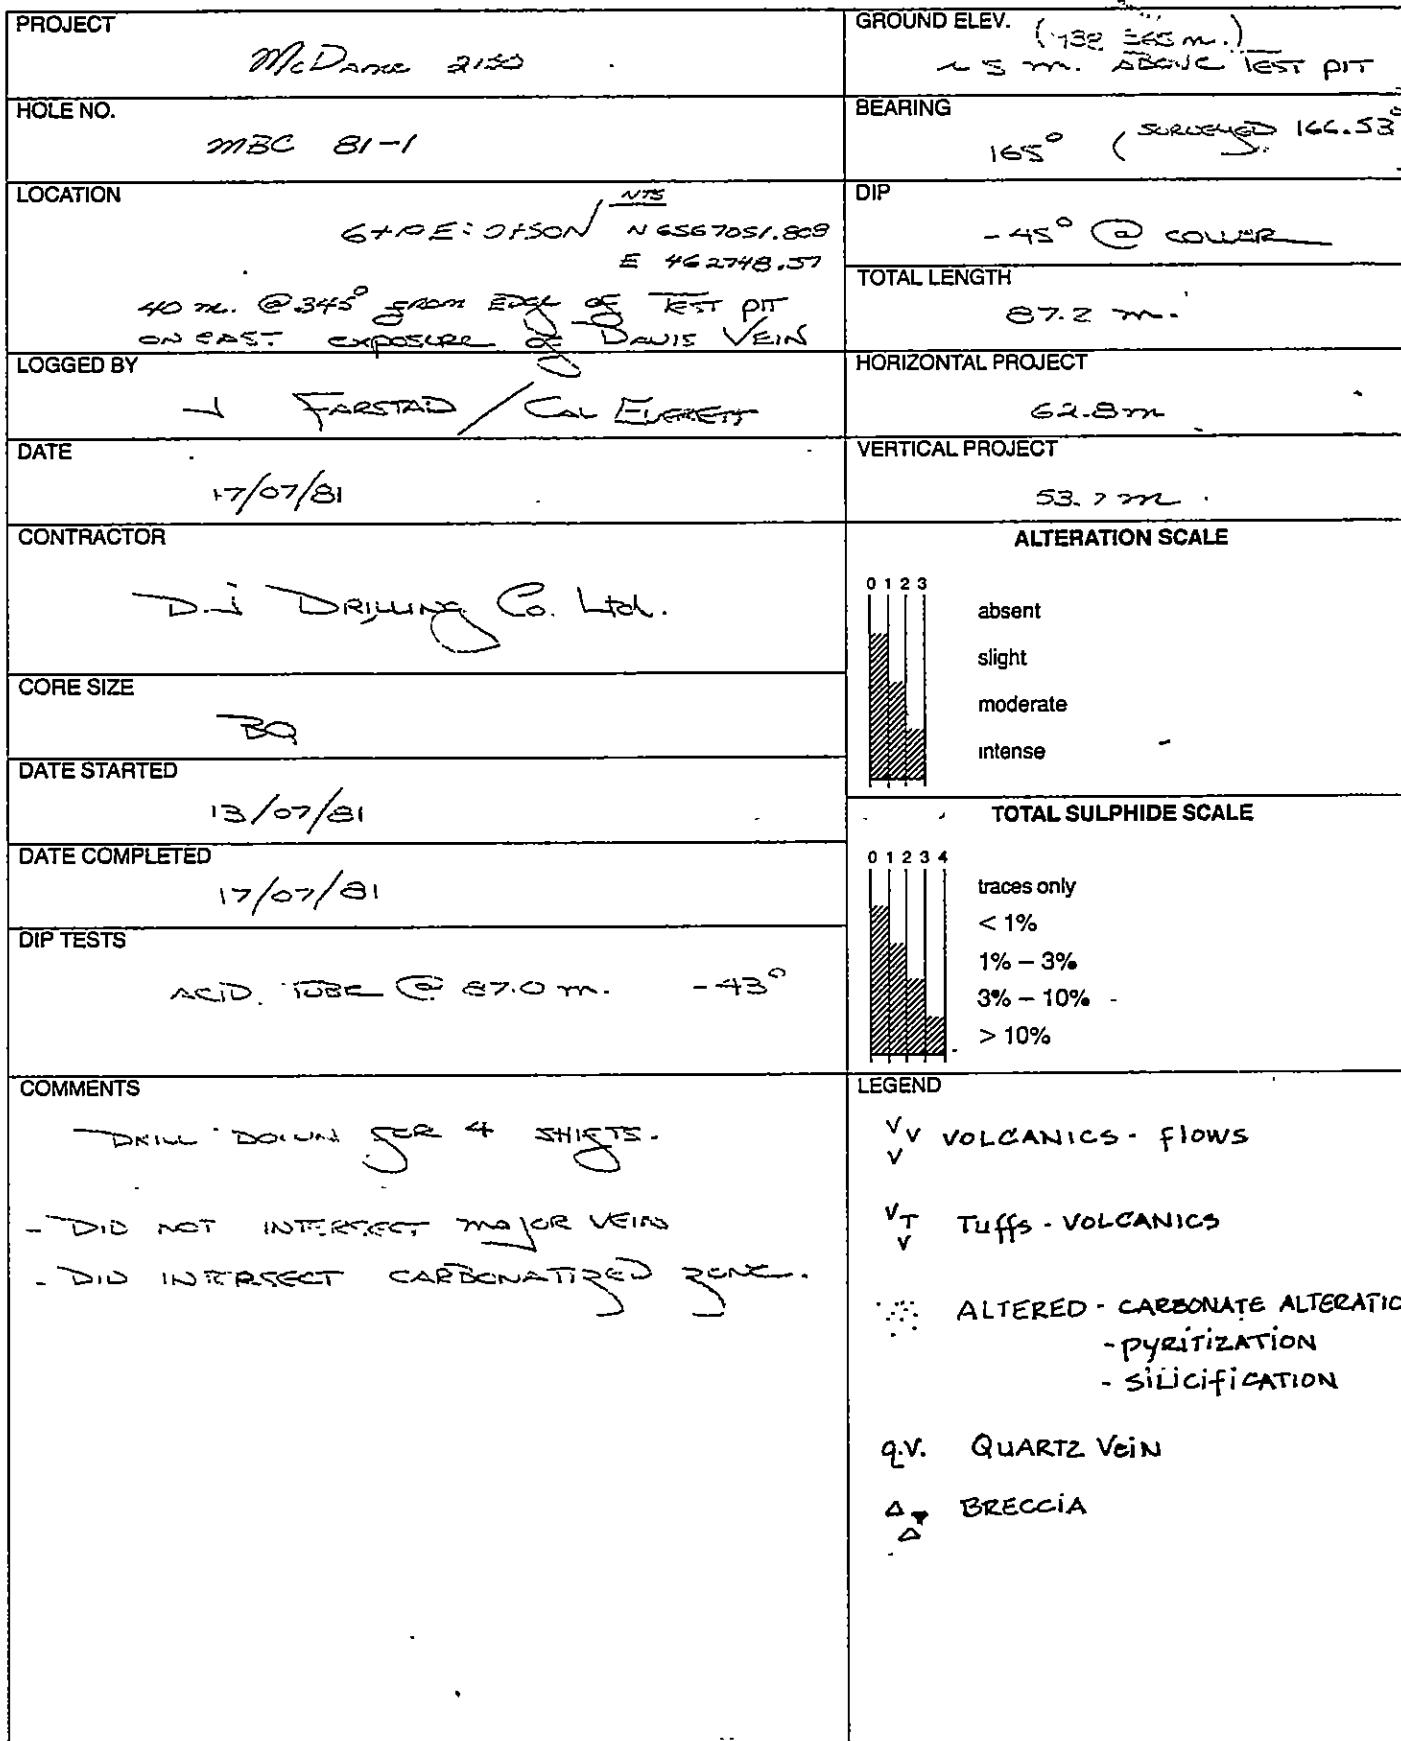 PROJECT
McDame 2150
HOLE NO.
MBC 81-1
LOCATION
NTS
N 6567051.809
E 462748.57
40 m. @ 345° from EDGE of TEST PIT
ON EAST EXPOSURE of DAVIS VEIN
LOGGED BY
J FARSTAD / CAL EVERETT
DATE
17/07/81
CONTRACTOR
D.J DRILLING Co. Ltd.
CORE SIZE
BQ
DATE STARTED
13/07/81
DATE COMPLETED
17/07/81
DIP TESTS
ACID TUBE @ 87.0 m. -43°
COMMENTS
DRILL DOWN FOR 4 SHIFTS.
- DID NOT INTERSECT MAJOR VEIN
- DID INTERSECT CARBONATIZED ZONE.
GROUND ELEV.
~ 5 m. ABOVE TEST PIT
BEARING
165° (SURVEYED 166.53°
DIP
-45° @ COLLAR
TOTAL LENGTH
87.2 m.
HORIZONTAL PROJECT
62.8 m
VERTICAL PROJECT
53.7 m
ALTERATION SCALE
0 1 2 3
absent
slight
moderate
intense
TOTAL SULPHIDE SCALE
0 1 2 3 4
traces only
< 1%
1% – 3%
3% – 10%
> 10%
LEGEND
V V V VOLCANICS - flows
V T V Tuffs - VOLCANICS
ALTERED - CARBONATE ALTERATIO
- PYRITIZATION
- SILICIFICATION
q.V. QUARTZ VEIN
BRECCIA